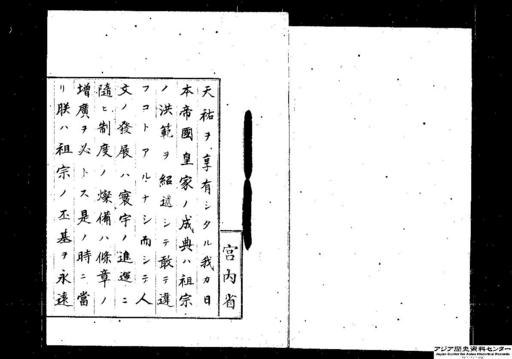 天祐ヲ享有シタル我カ日
本帝國皇家ノ成典ハ祖宗
ノ洪範ヲ紹述シテ敢テ違
フコトアルナシ而シテ人
文ノ發展ハ寰宇ノ進運ニ
隨ヒ制度ノ燦備ハ條章ノ
增廣ヲ必トス是ノ時ニ當
リ朕ハ祖宗ノ丕基ヲ永遠
宮内省
アジア歴史資料センター
Japan Center for Asian Historical Records